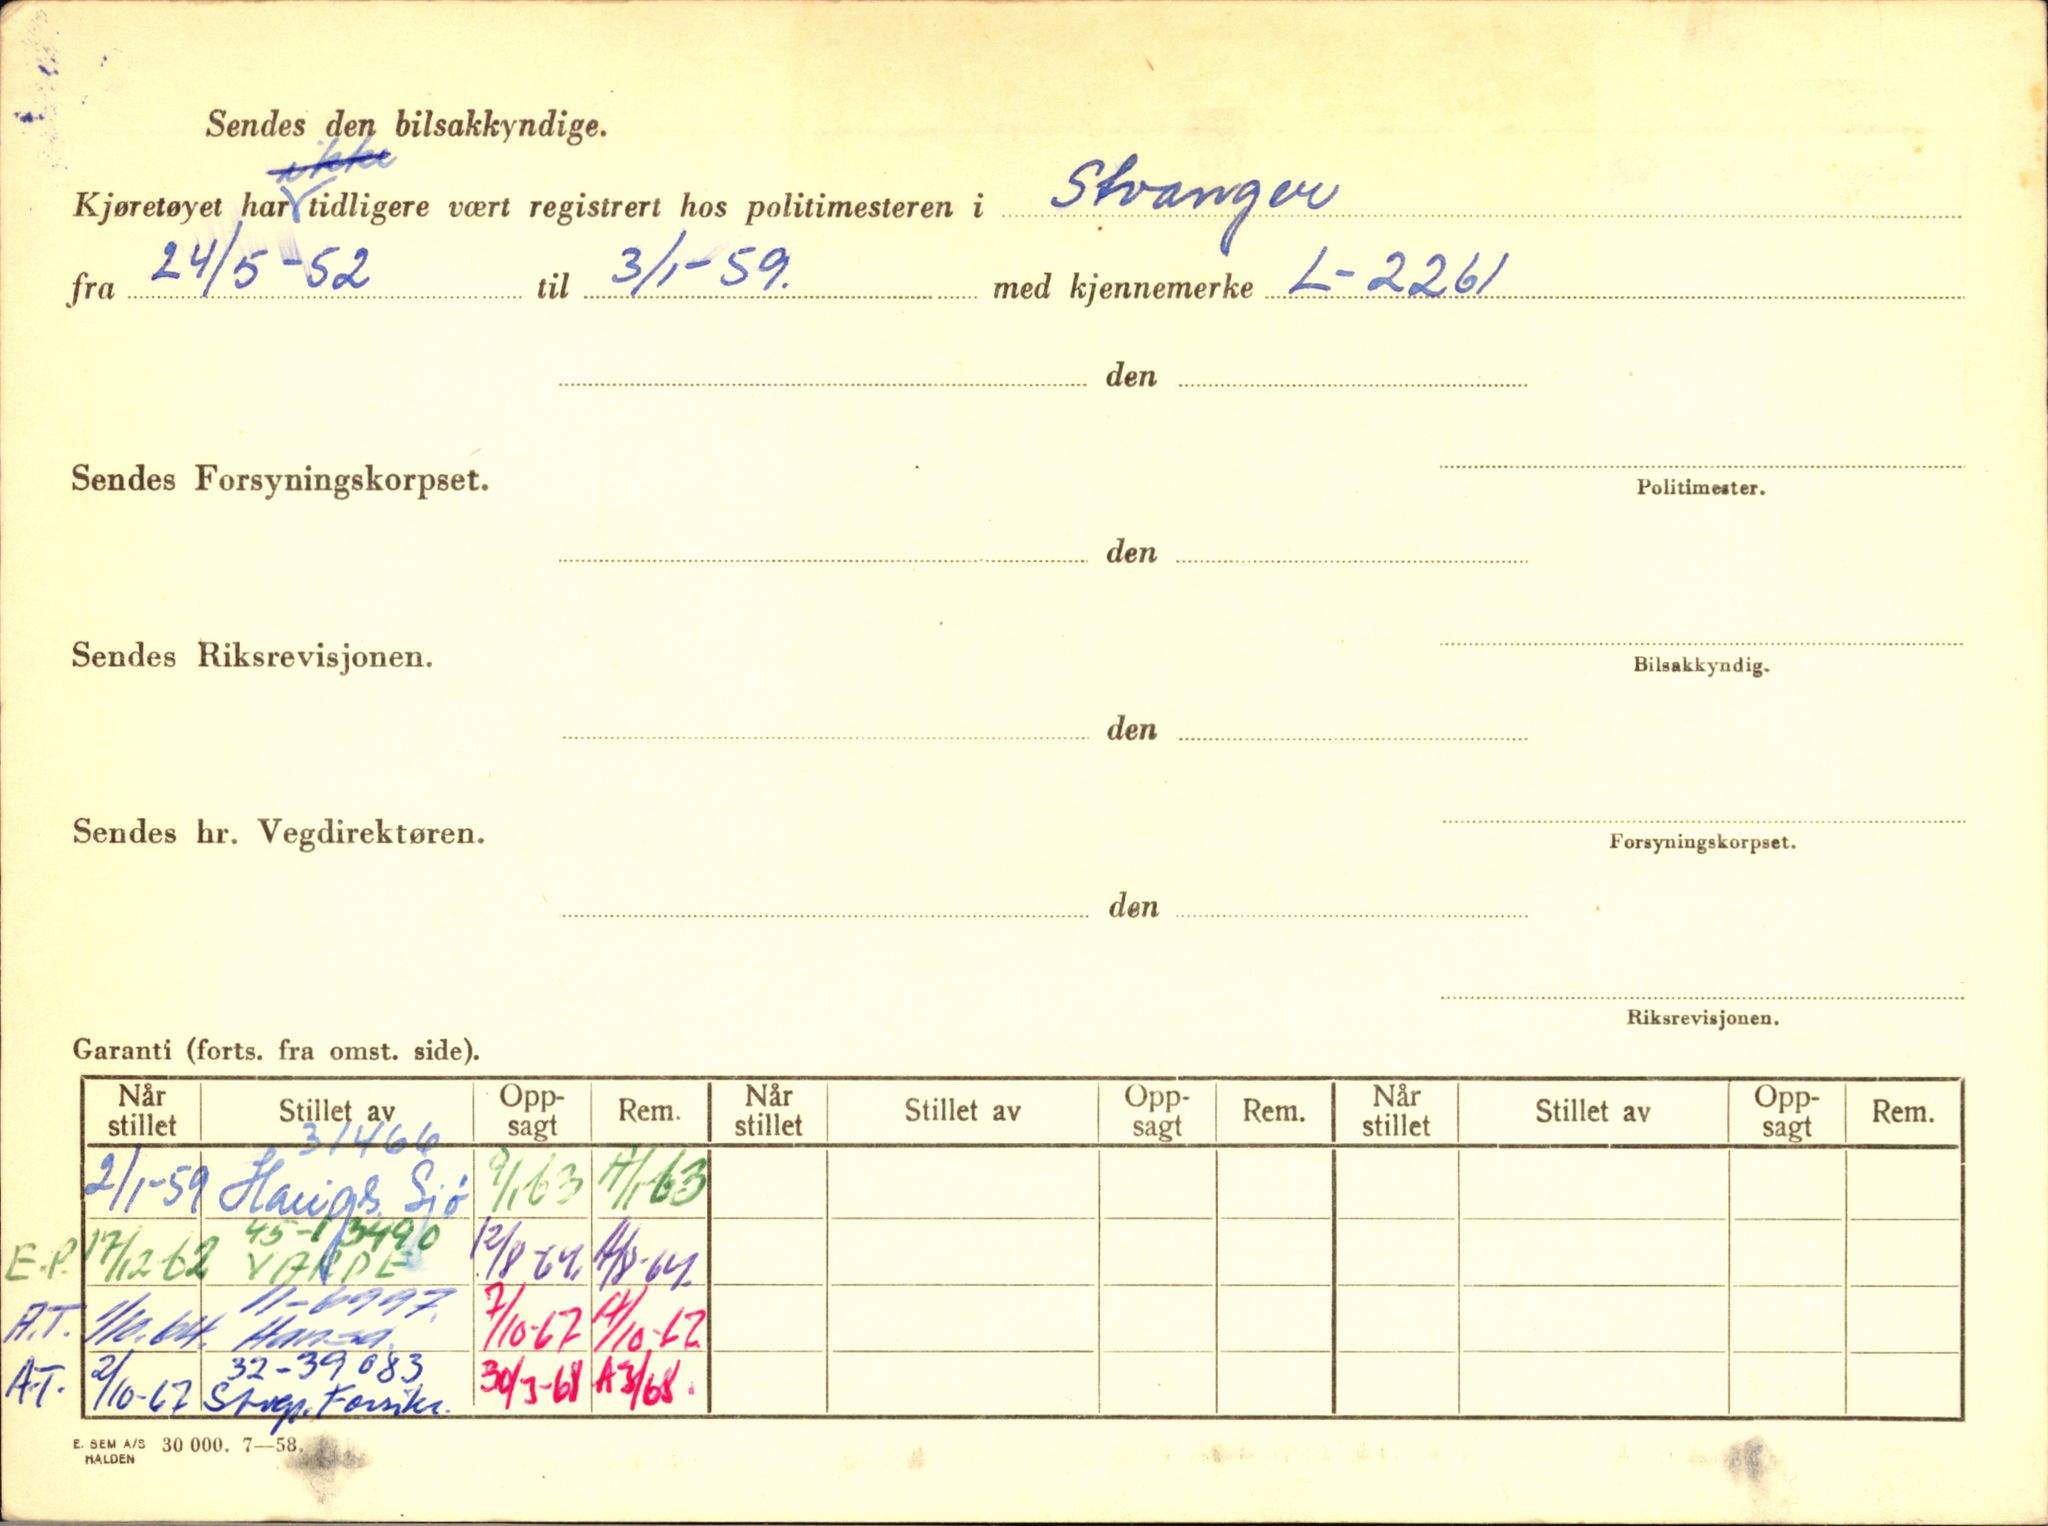 Sendes den bilsakkyndige.
ikke
Kjøretøyet har tidligere vært registrert hos politimesteren i Stvanger
fra 24/5-52 til 3/1-59. med kjennemerke L-2261
den
Sendes Forsyningskorpset.
Politimester.
den
Sendes Riksrevisjonen.
Bilsakkyndig.
den
Sendes hr. Vegdirektøren.
Forsyningskorpset.
den
Riksrevisjonen.
Garanti (forts. fra omst. side).
Når stillet Stillet av Opp-sagt Rem. Når stillet Stillet av Opp-sagt Rem. Når stillet Stillet av Opp-sagt Rem.
31466
2/1-59 Haugs. Sjø 9/1 63 A/1-63
45-13490
E.P. 17/12-62 VARDE 12/8-64. A/8-64.
11-6997.
A.T. 1/10.64. Hansa. 7/10-67 A/10-67
32-39083
A.T. 2/10-67 Stvgr. Forsikr. 30/3-68 A3/68.
E. SEM A/S 30 000. 7—58.
HALDEN